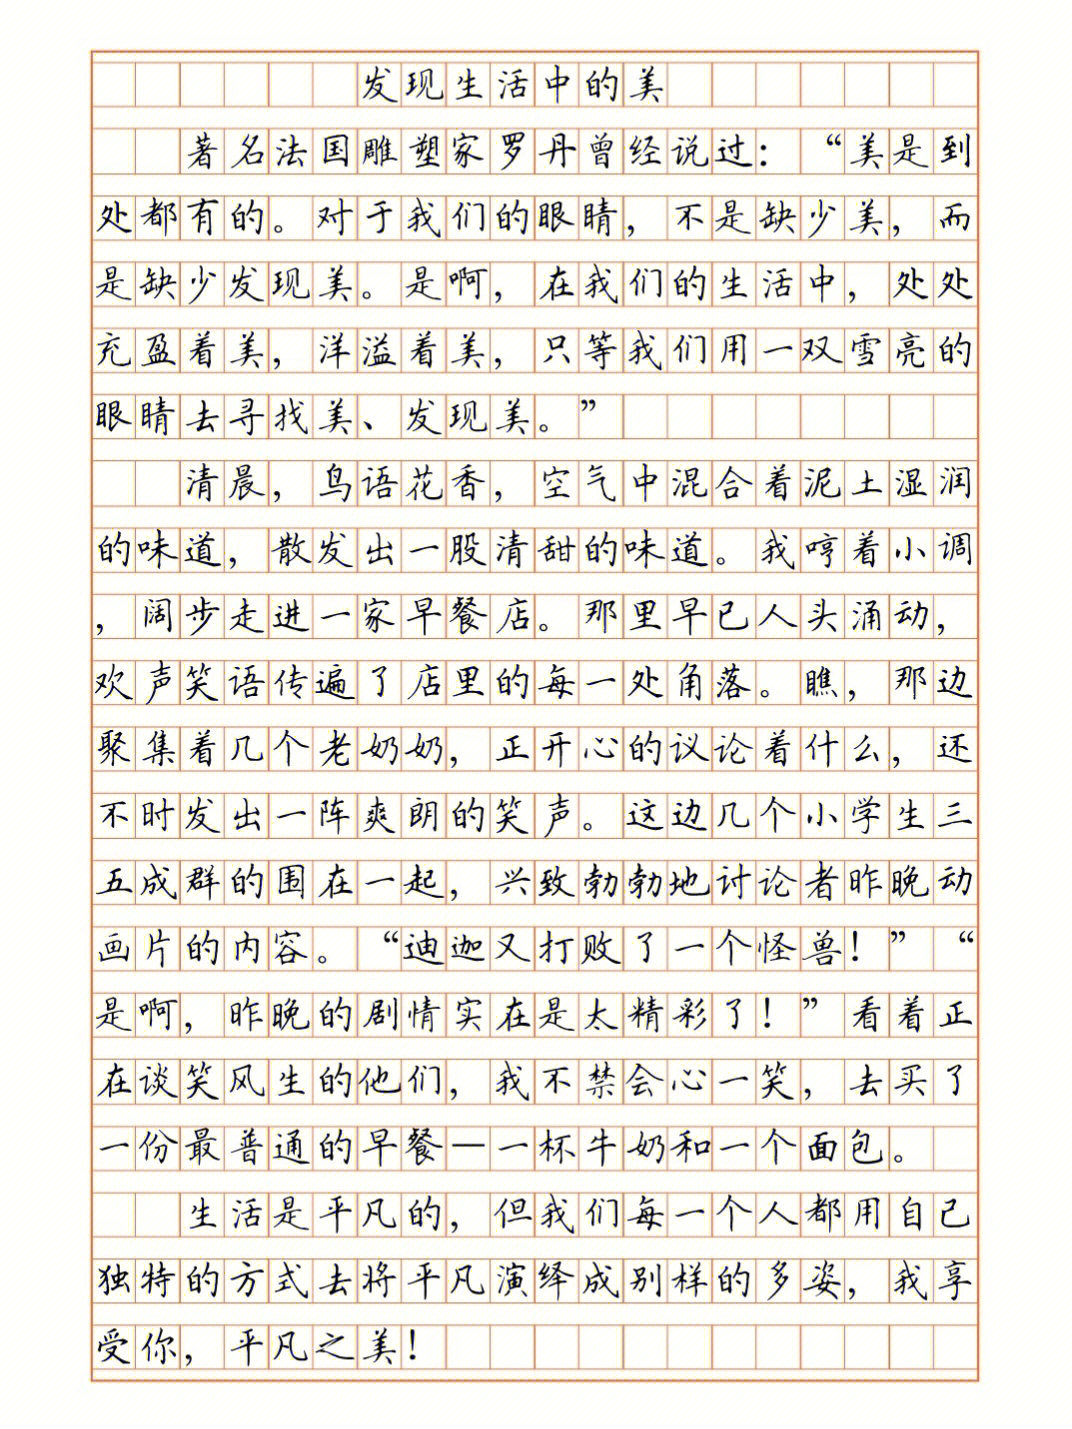 发现生活中的美
著名法国雕塑家罗丹曾经说过：“美是到
处都有的。对于我们的眼睛，不是缺少美，而
是缺少发现美。是啊，在我们的生活中，处处
充盈着美，洋溢着美，只等我们用一双雪亮的
眼睛去寻找美、发现美。”
清晨，鸟语花香，空气中混合着泥土湿润
的味道，散发出一股清甜的味道。我哼着小调
，阔步走进一家早餐店。那里早已人头涌动，
欢声笑语传遍了店里的每一处角落。瞧，那边
聚集着几个老奶奶，正开心的议论着什么，还
不时发出一阵爽朗的笑声。这边几个小学生三
五成群的围在一起，兴致勃勃地讨论者昨晚动
画片的内容。“迪迦又打败了一个怪兽！”“
是啊，昨晚的剧情实在是太精彩了！”看着正
在谈笑风生的他们，我不禁会心一笑，去买了
一份最普通的早餐—一杯牛奶和一个面包。
生活是平凡的，但我们每一个人都用自己
独特的方式去将平凡演绎成别样的多姿，我享
受你，平凡之美！